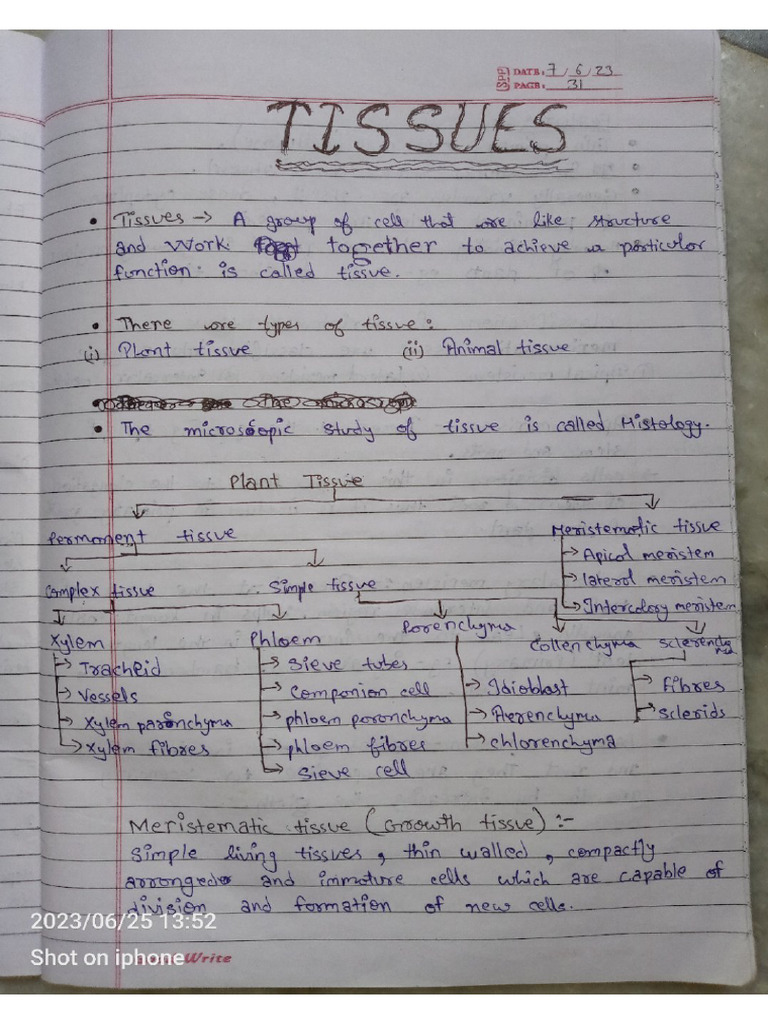 SPP DATE: 7/6/23
PAGE: 31
TISSUES
• Tissues → A group of cell that are like structure
and work together to achieve a particular
function is called tissue.
• There are types of tissue:
(i) Plant tissue (ii) Animal tissue
• The microscopic study of tissue is called Histology.
Plant Tissue
Permanent tissue Meristematic tissue
→ Apical meristem
Complex tissue Simple tissue → lateral meristem
→ Intercalary meristem
Xylem Phloem Parenchyma Collenchyma Sclerenchyma
→ Tracheid → Sieve tubes
→ Vessels → Companion cell → Idioblast → fibres
→ Xylem parenchyma → phloem parenchyma → Aerenchyma → sclerids
→ Xylem fibres → phloem fibres → chlorenchyma
→ Sieve cell
Meristematic tissue (Growth tissue) :-
Simple living tissues, thin walled, compactly
arranged and immature cells which are capable of
division and formation of new cells.
2023/06/25 13:52
Shot on iphone
Write